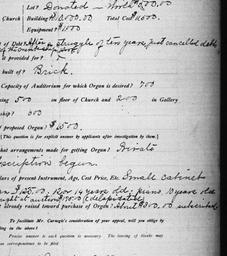 Lot? Donated - Worth $500.00
Church Building $12,000.00 Total Cost
Equipment $1000
of Debt? After a struggle of ten years, just cancelled debt
is provided for?
built of? Brick.
Capacity of Auditorium for which Organ is desired? 700
ing 500 in floor of Church and 200 in Gallery
ship? 300
proposed Organ? $1500.
[This question is for explicit answer by applicants after investigation by them.]
hat arrangements made for getting Organ? Private
scription begun.
lars of present Instrument, Age, Cost Price, Etc. Small cabinet
14 years old: piano, 10 years old
bought at auction
already raised toward purchase of Organ: About $300.00 subscribed
To facilitate Mr. Carnegie's consideration of your appeal, will you oblige by
ling in the above!
Precise answer to each question is necessary. The leaving of blanks may
correspondence to be filed